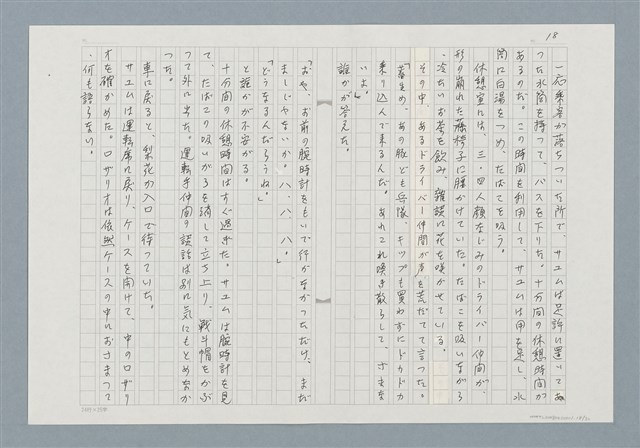 18
一応乗客が落ちついた所で、サユムは足許に置いてあ
った水筒を持って、バスを下りた。十分間の休憩時間が
あるのだ。この時間を利用して、サユムは用を足し、水
筒に白湯をつめ、たばこを吸う。
休憩室には、三・四人顔なじみのドライバー仲間が、
形の崩れた藤椅子に腰かけていた。たばこを吸いながら
冷たいお茶を飲み、雑談に花を咲かせている。
その中、あるドライバー仲間が声を荒だてて言った。
「畜生め、あの豚ども兵隊、キップも買わずにドカドカ
乗り込んで来るんだ。あれこれ喚き散らして、さまあ
いよ。」
誰かが答えた。
「おや、お前の腕時計をもいで行かなかっただけ、まだ
ましじゃないか。ハ、ハ、ハ。」
「どうなるんだろうね。」
と誰かが不安がる。
十分間の休憩時間はすぐ過ぎた。サユムは腕時計を見
て、たばこの吸いがらを消して立ち上り、戦斗帽をかぶ
って外に出た。運転手仲間の談話は別に気にもとめなか
った。
車に戻ると、梨花が入口で待っていた。
サユムは運転席に戻り、ケースを開けて、中のロザリ
オを確かめた。ロザリオは依然ケースの中におさまって
何も語らない。